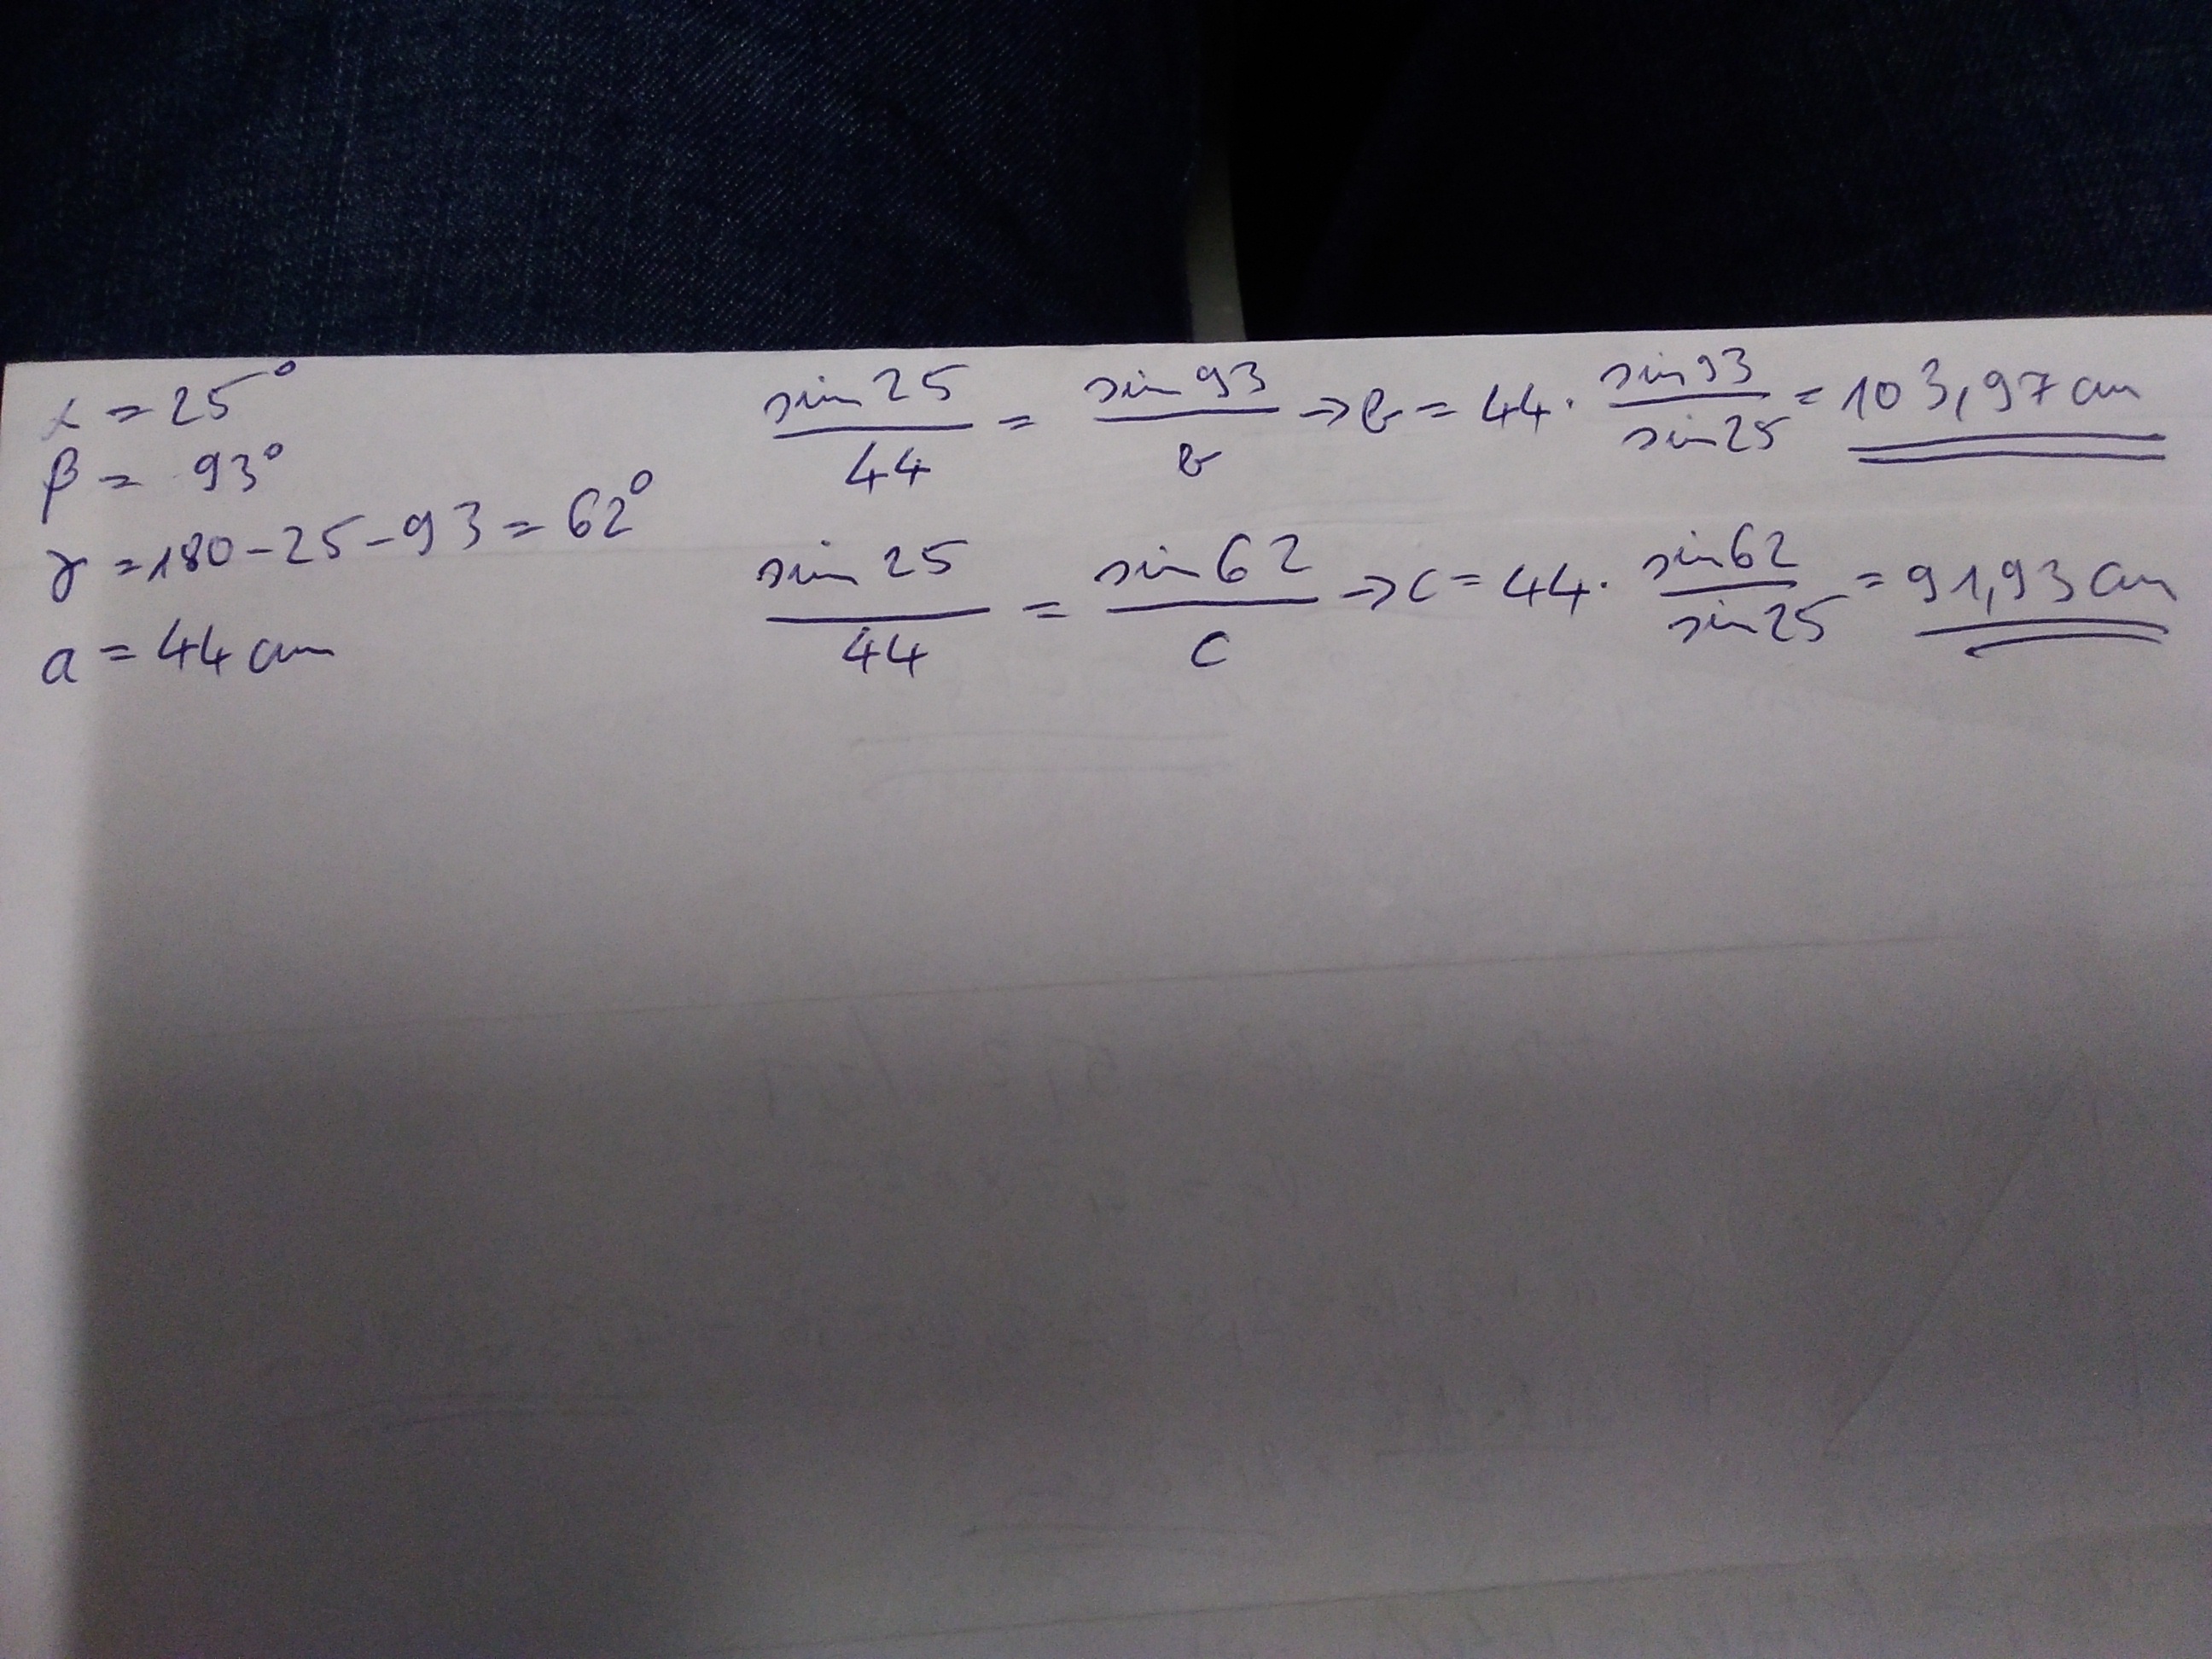 α = 25°
β = 93°
γ = 180 - 25 - 93 = 62°
a = 44 cm
sin 25 / 44 = sin 93 / b → b = 44 · sin 93 / sin 25 = 103,97 cm
sin 25 / 44 = sin 62 / c → c = 44 · sin 62 / sin 25 = 91,93 cm